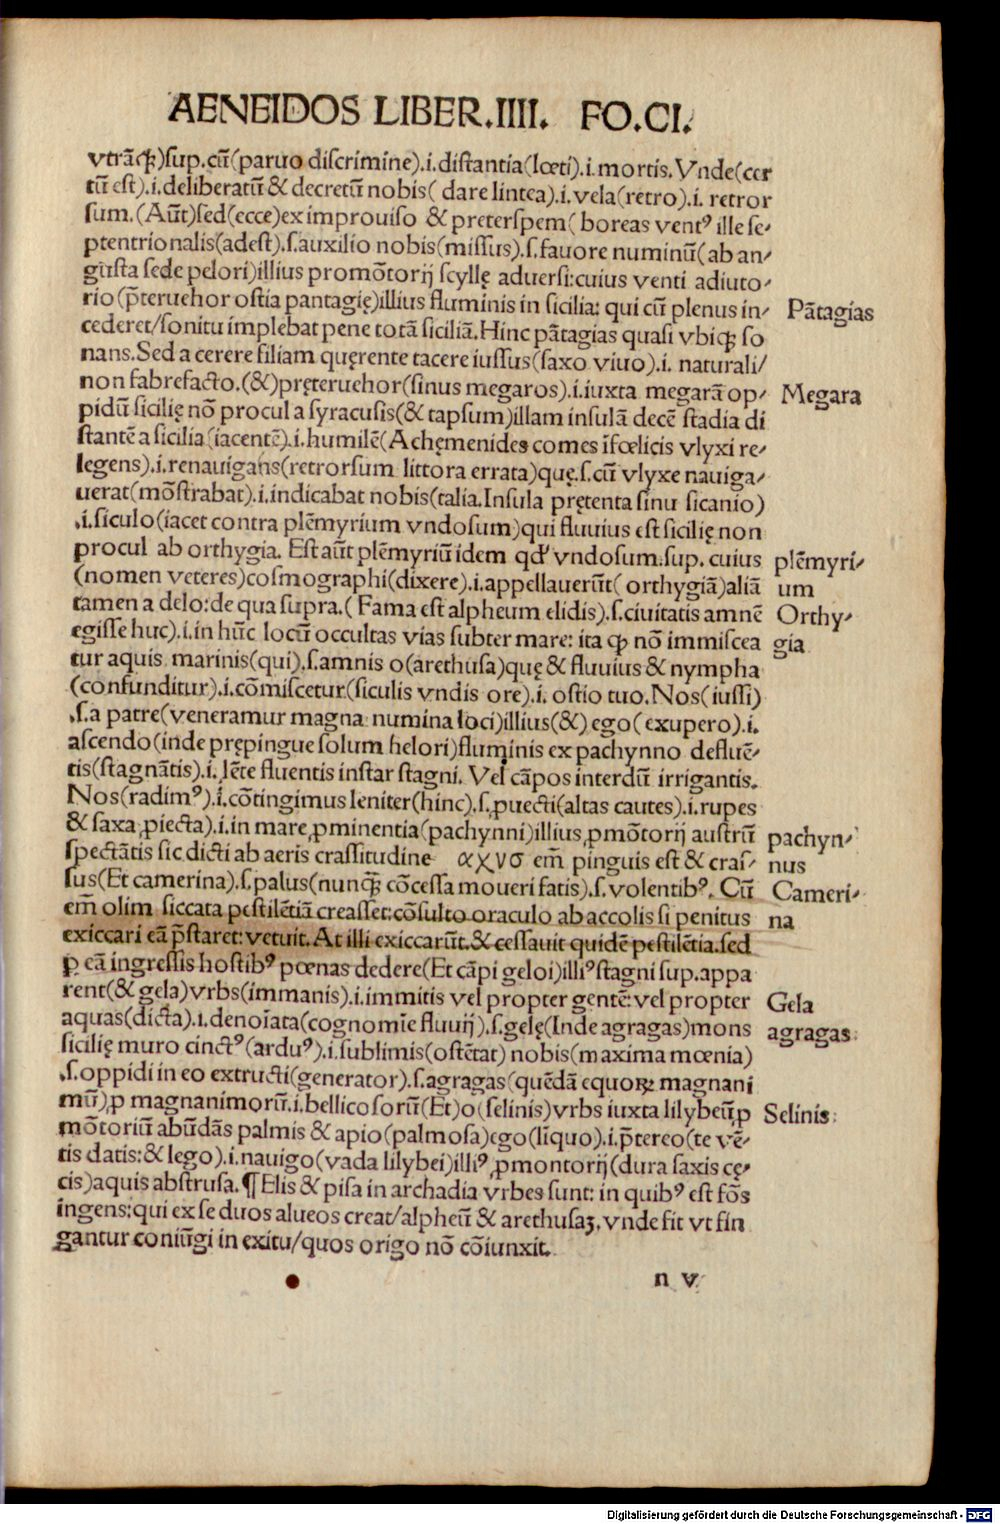 AENEIDOS LIBER.IIII. FO.CI.
vtrāq;)sup.cū(paruo discrimine).i.distantia(lœti).i.mortis.Vnde(cer
tū est).i.deliberatū & decretū nobis( dare lintea).i.vela(retro).i. retror
sum.(Aūt)sed(ecce)ex improuiso & preterspem( boreas ventꝰ ille se/
ptentrionalis(adest).s.auxilio nobis(missus).s.fauore numinū( ab an/
gusta sede pelori)illius promōtorij scyllę aduersi:cuius venti adiuto/
rio(p̄teruehor ostia pantagię)illius fluminis in sicilia: qui cū plenus in/
Pātagias
cederet/sonitu implebat pene totā siciliā.Hinc pātagias quasi vbiq; so
nans.Sed a cerere filiam quęrente tacere iussus(saxo viuo).i. naturali/
non fabrefacto.(&)pręteruehor(sinus megaros).i.iuxta megarā op/
Megara
pidū sicilię nō procul a syracusis(& tapsum)illam insulā decē stadia di
stantē a sicilia(iacentē).i.humilē(Achęmenides comes īfœlicis vlyxi re/
legens).i.renauigans(retrorsum littora errata)quę.s.cū vlyxe nauiga/
uerat(mōstrabat).i.indicabat nobis(talia.Insula prętenta sinu sicanio)
.i.siculo(iacet contra plēmyrium vndosum)qui fluuius est sicilię non
procul ab orthygia. Est aūt plēmyriū idem qđ vndosum.sup. cuius
plēmyri/
(nomen veteres)cosmographi(dixere).i.appellauerūt( orthygiā)aliā
um
tamen a delo:de qua supra.( Fama est alpheum elidis).s.ciuitatis amnē
Orthy/
egisse huc).i.in hūc locū occultas vias subter mare: ita ꝙ nō immiscea
gia
tur aquis marinis(qui).s.amnis o(arethusa)quę & fluuius & nympha
(confunditur).i.cōmiscetur(siculis vndis ore).i. ostio tuo.Nos(iussi)
.s.a patre(veneramur magna numina loci)illius(&)ego(exupero).i.
ascendo(inde prępingue solum helori)fluminis ex pachynno defluē/
tis(stagnātis).i.lēte fluentis instar stagni. Vel cāpos interdū irrigantis.
Nos(radimꝰ).i.cōtingimus leniter(hinc).s.ꝓuecti(altas cautes).i.rupes
& saxa ꝓiecta).i.in mare ꝓminentia(pachynni)illius ꝓmōtorij austrū
pachyn/
spectātis sic dicti ab aeris crassitudine αχυσ em̄ pinguis est & cras/
nus
sus(Et camerina).s.palus(nunq̄ cōcessa moueri fatis).s.volentibꝰ. Cū
Cameri/
em̄ olim siccata pestilētiā creasset:cōsulto oraculo ab accolis si penitus
na
exiccari eā p̄staret: vetuit. At illi exiccarūt.& cessauit quidē pestilētia.sed
ꝑ eā ingressis hostibꝰ pœnas dedere(Et cāpi geloi)illiꝰ stagni sup.appa
rent(& gela)vrbs(immanis).i.immitis vel propter gentē:vel propter
Gela
aquas(dicta).i.denoīata(cognomīe fluuij).s.gelę(Inde agragas)mons
agragas.
sicilię muro cinctꝰ(arduꝰ).i.sublimis(ostētat) nobis(maxima mœnia)
.s.oppidi in eo extructi(generator).s.agragas(quēdā equoꝝ magnani
mū).ꝓ magnanimorū.i.bellicosorū(Et)o(selinis)vrbs iuxta lilybeū ꝓ
Selinis.
mōtoriū abūdās palmis & apio(palmosa)ego(līquo).i.p̄tereo(te vē/
tis datis:& lego).i.nauigo(vada lilybei)illiꝰ ꝓmontorij(dura saxis cę/
cis)aquis abstrusa.¶ Elis & pisa in archadia vrbes sunt: in quibꝰ est fōs
ingens:qui ex se duos alueos creat/alpheū & arethusaȝ, vnde fit vt fin
gantur coniūgi in exitu/quos origo nō cōiunxit.
n v
Digitalisierung gefördert durch die Deutsche Forschungsgemeinschaft - DFG